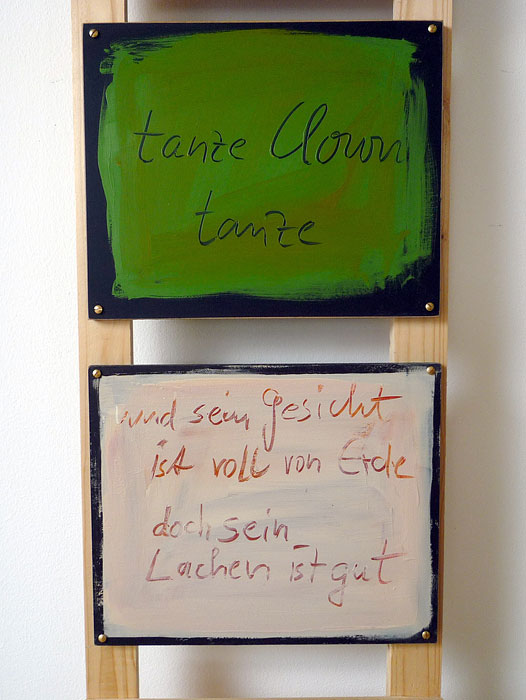 tanze Clown
tanze
und sein Gesicht
ist voll von Erde
doch sein
Lachen ist gut